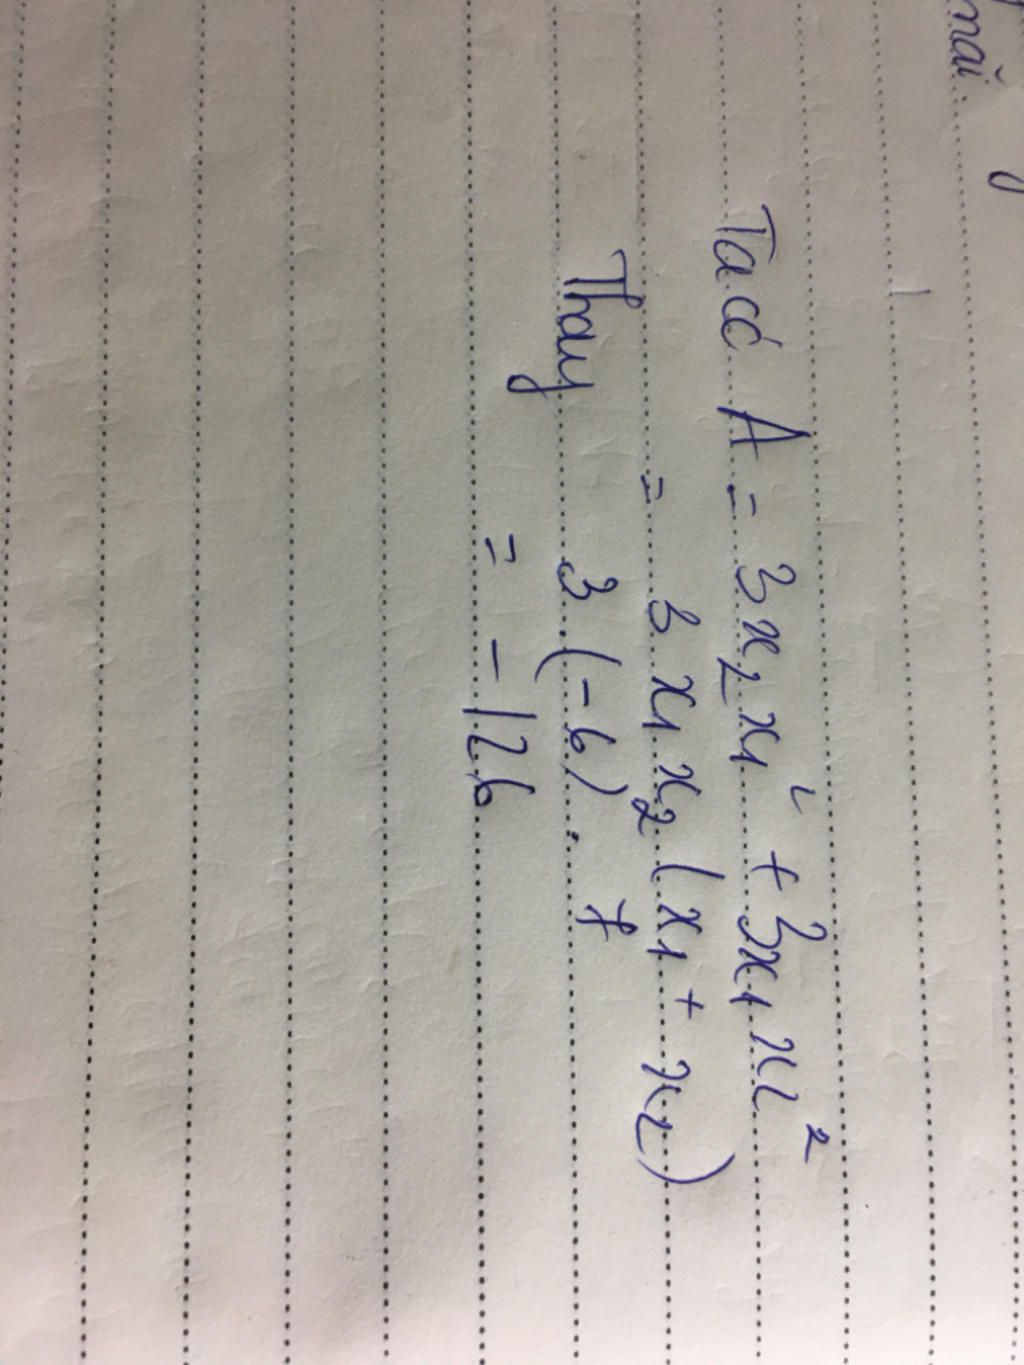 mãi
Ta có A = 3x₂x₁² + 3x₁x₂²
= 3x₁x₂(x₁ + x₂)
Thay 3.(-6).7
= -126